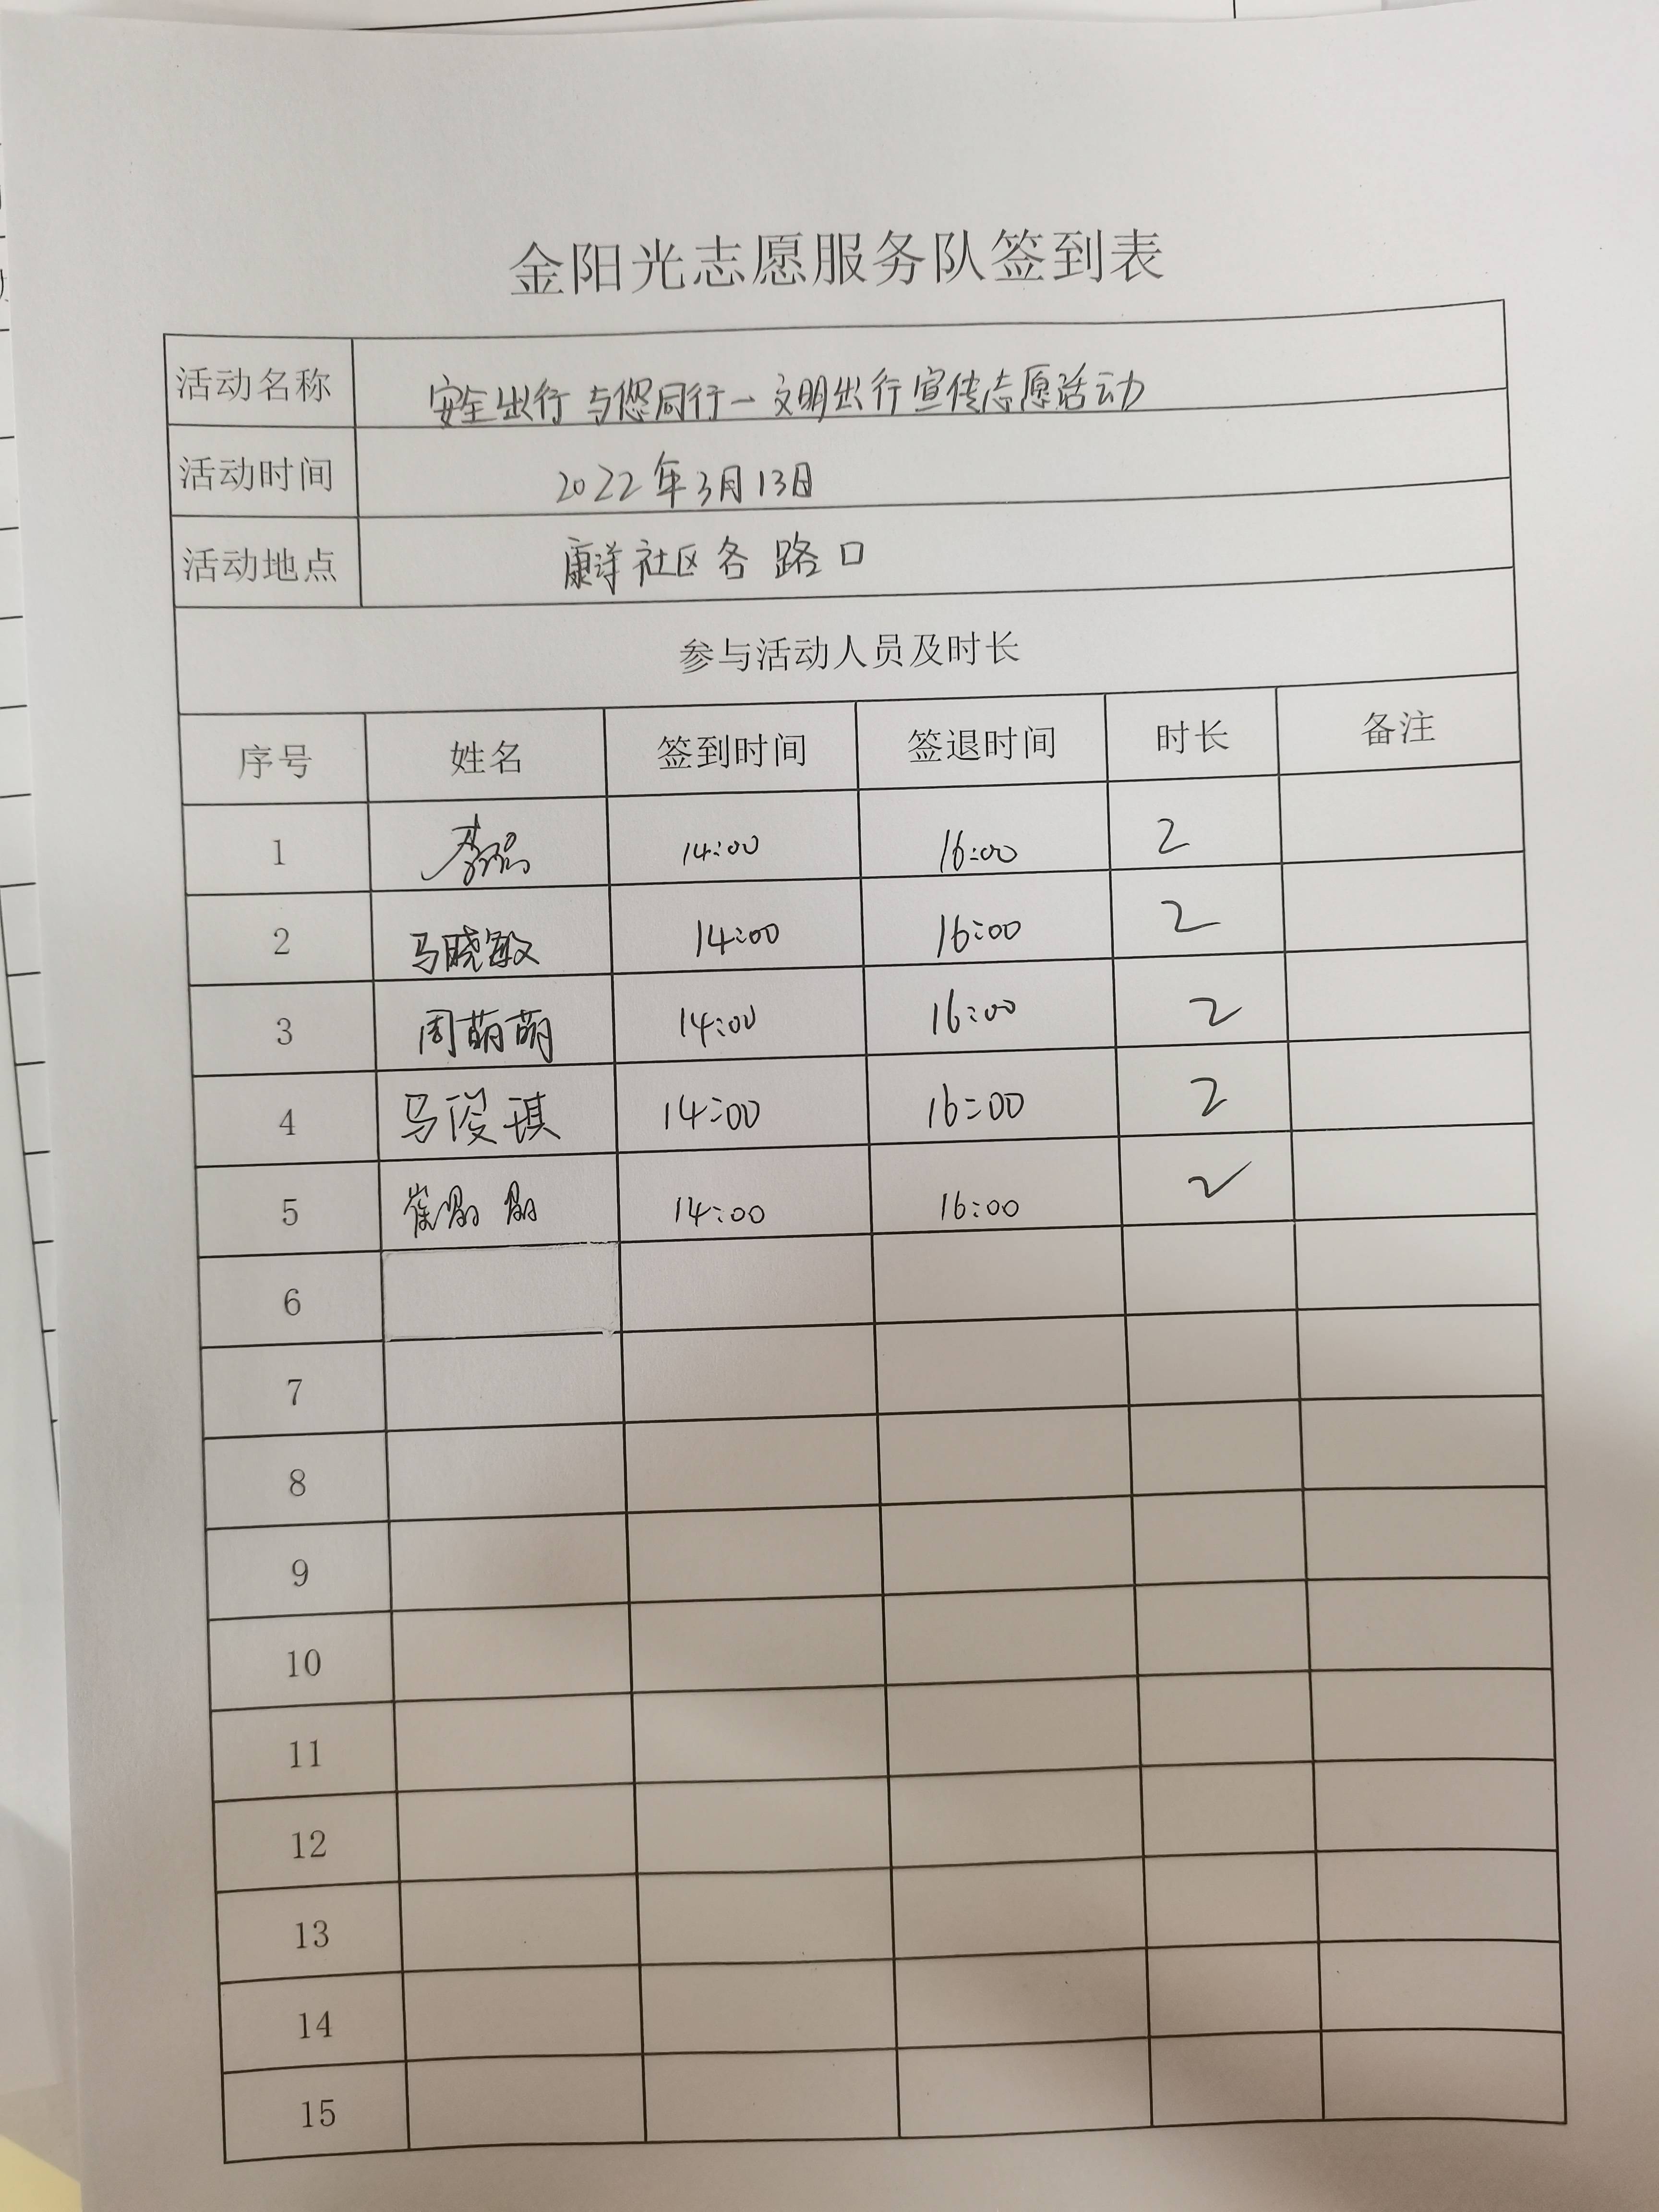 金阳光志愿服务队签到表
活动名称 安全出行 与您同行一文明出行宣传志愿活动
活动时间 2022年3月13日
活动地点 康洋社区各路口
参与活动人员及时长
序号 姓名 签到时间 签退时间 时长 备注
1 14:00 16:00 2
2 马晓敏 14:00 16:00 2
3 周萌萌 14:00 16:00 2
4 马俊琪 14:00 16:00 2
5 14:00 16:00 2
6
7
8
9
10
11
12
13
14
15